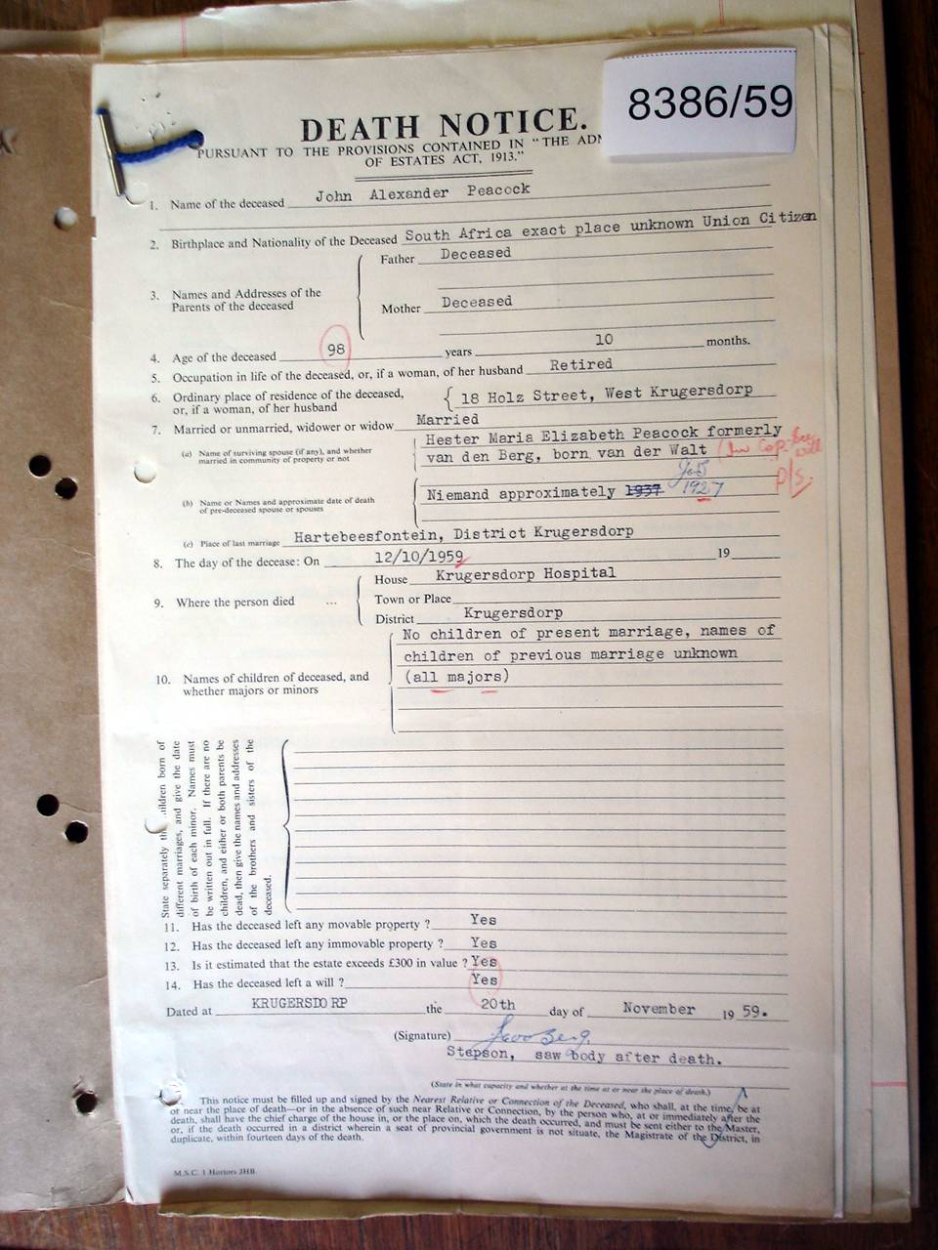 8386/59
DEATH NOTICE.
PURSUANT TO THE PROVISIONS CONTAINED IN "THE ADM
OF ESTATES ACT, 1913."
1. Name of the deceased John Alexander Peacock
2. Birthplace and Nationality of the Deceased South Africa exact place unknown Union Citizen
3. Names and Addresses of the Parents of the deceased
Father Deceased
Mother Deceased
4. Age of the deceased 98 years 10 months.
5. Occupation in life of the deceased, or, if a woman, of her husband Retired
6. Ordinary place of residence of the deceased,
or, if a woman, of her husband
18 Holz Street, West Krugersdorp
7. Married or unmarried, widower or widow Married
(a) Name of surviving spouse (if any), and whether
married in community of property or not
Hester Maria Elizabeth Peacock formerly
van den Berg, born van der Walt
(b) Name or Names and approximate date of death
of pre-deceased spouse or spouses
Niemand approximately 1937 1927
(c) Place of last marriage Hartebeesfontein, District Krugersdorp
8. The day of the decease: On 12/10/1959 19
9. Where the person died ...
House Krugersdorp Hospital
Town or Place
District Krugersdorp
10. Names of children of deceased, and
whether majors or minors
No children of present marriage, names of
children of previous marriage unknown
(all majors)
State separately the children born of
different marriages, and give the date
of birth of each minor. Names must
be written out in full. If there are no
children, and either or both parents be
dead, then give the names and addresses
of the brothers and sisters of the
deceased.
11. Has the deceased left any movable property ? Yes
12. Has the deceased left any immovable property ? Yes
13. Is it estimated that the estate exceeds £300 in value ? Yes
14. Has the deceased left a will ? Yes
Dated at KRUGERSDORP the 20th day of November 19 59.
(Signature)
Stepson, saw body after death.
(State in what capacity and whether at the time at or near the place of death.)
This notice must be filled up and signed by the Nearest Relative or Connection of the Deceased, who shall, at the time, be at
or near the place of death—or in the absence of such near Relative or Connection, by the person who, at or immediately after the
death, shall have the chief charge of the house in, or the place on, which the death occurred, and must be sent either to the Master,
or, if the death occurred in a district wherein a seat of provincial government is not situate, the Magistrate of the District, in
duplicate, within fourteen days of the death.
M.S.C. 1 Hortors JHB.